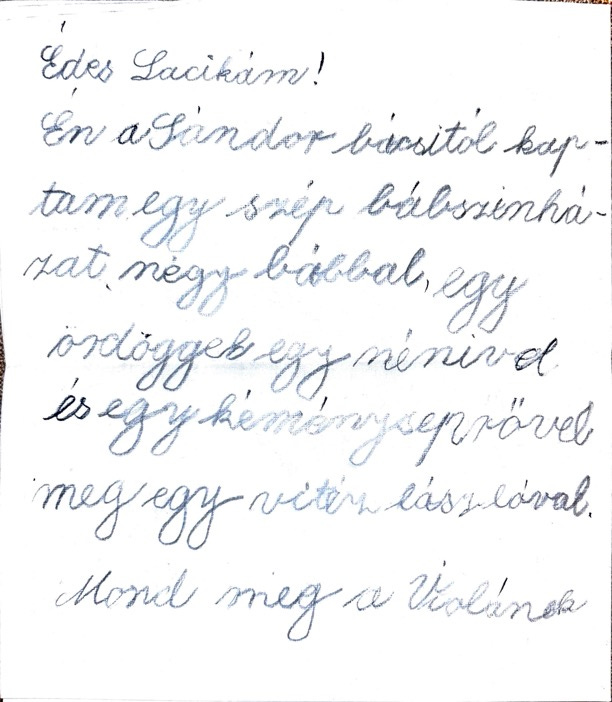 Édes Lacikám!
Én a Sándor bácsitól kap-
tam egy szép bábszinhá-
zat, négy bábbal, egy
ördöggel egy nénivel
és egy kéményseprővel
meg egy vitéz lászlóval.
Mond meg a Violának